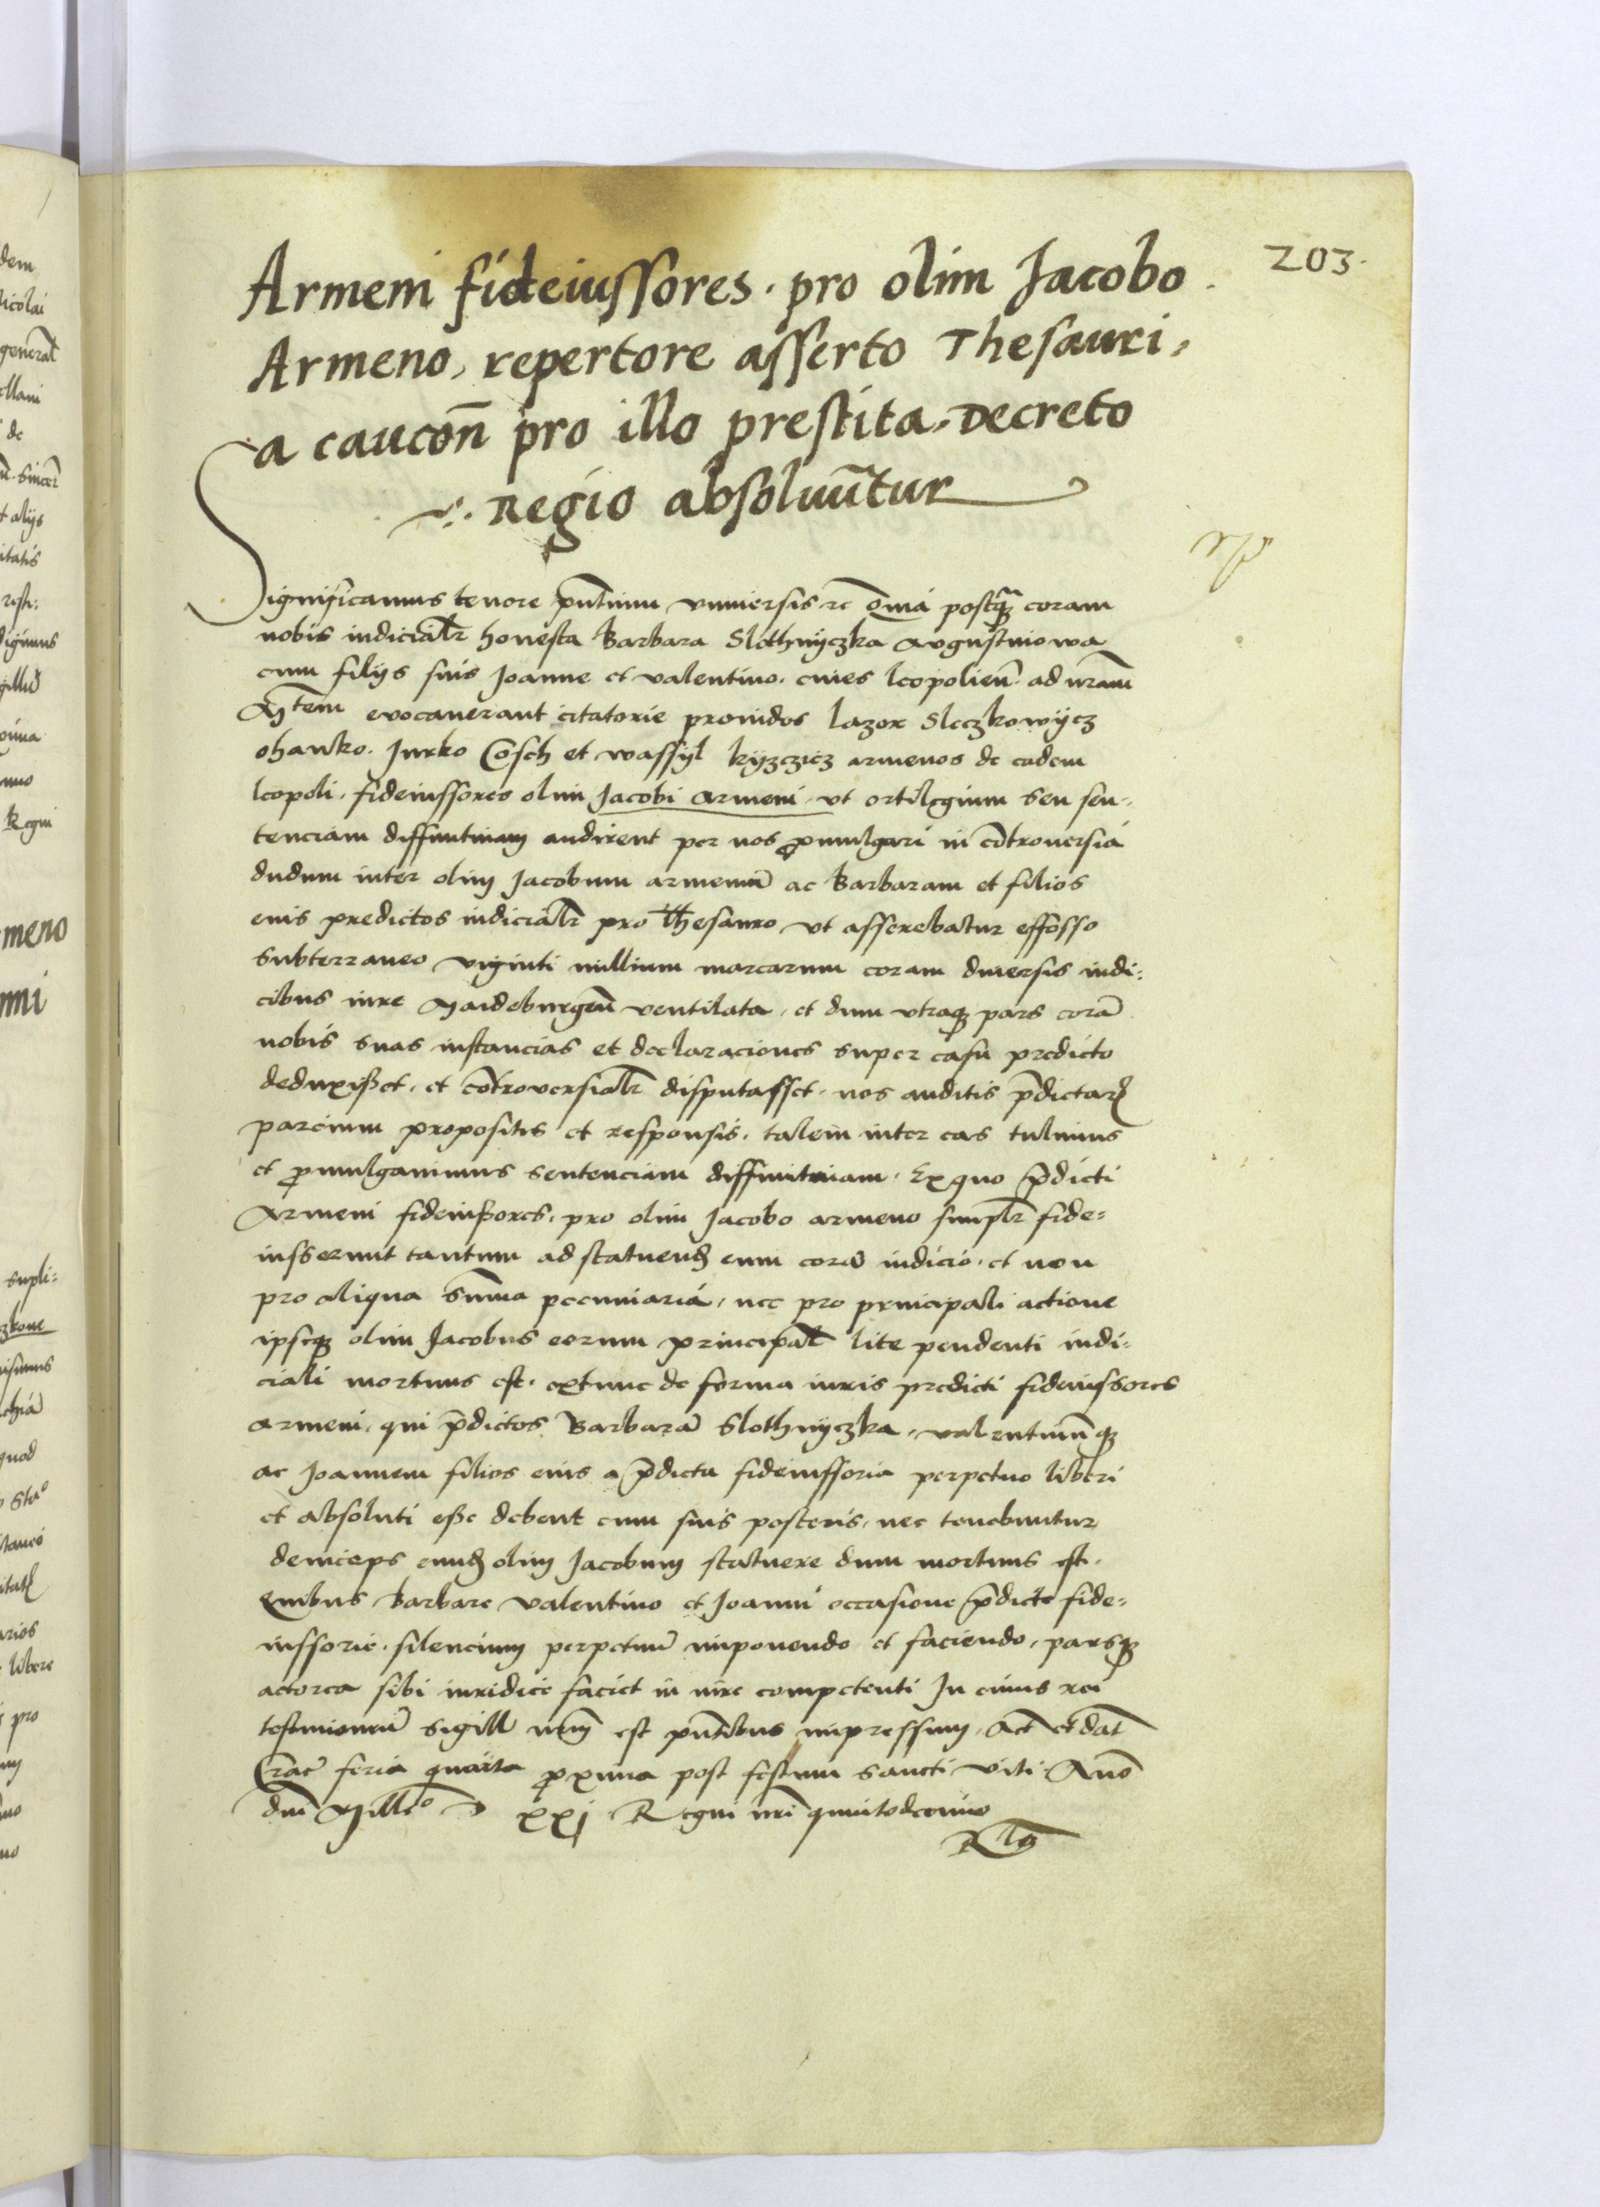 203.
Armeni fideiussores. pro olim Jacobo
Armeno, repertore asserto Thesauri,
a caucōn pro illo prestita, Decreto
Regio absoluūtur
Significamus tenore pn̄tium vniuersis rc Quia postq̄ȝ coram
nobis iudicialr̄ honesta Barbara Slothnyczka Avgustinowa
cum filijs suis Joanne et valentino. ciues leopolien̄. ad nrām
Mtem evocauerant citatorie prouidos lazor Sleczkowycz
ohanko. Jurko Cosch et wassyl kyzczicz armenos de eadem
leopoli. fideiussores olim Jacobi Armeni, vt ortilegium seu sen-
tenciam diffinitiuam audirent per nos promulgari in cōtrouersia
dudum inter olim Jacobum armenū ac Barbaram et filios
eius predictos iudicialr̄ pro Thesauro, vt asserebatur effosso
subterraneo viginti millium marcarum coram diuersis iudi-
cibus iure Maideburgeñ ventilata, et dum vtraqȝ pars corā
nobis suas instancias et declaraciones super casu predicto
deduxißet. et cōtrouersialr̄ disputasset. nos auditis p̄dictarȝ
parcium propositis et responsis. talem inter eas tulimus
et promulgauimus sentenciam diffinitiuam. Ex quo p̄dicti
Armeni fideiußores, pro olim Jacobo armeno simplr̄ fide-
iusserunt tantum ad statuendȝ eum corā iudicio. et non
pro aliqua sum̄a pecuniaria, nec pro principali actione
ipseqȝ olim Jacobus eorum principal̄ lite pendenti iudi-
ciali mortuus est. extunc de forma iuris predicti fideiussores
armeni, qui p̄dictos Barbarā Slothnyczka, valentinū qȝ
ac Joannem filios eius a p̄dicta fideiussoria perpetuo liberi
et absoluti eße debent cum suis posteris, nec tenebuntur
deinceps eundȝ olim Jacobum statuere dum mortuus est.
Quibus Barbare valentino et Joanni occasione p̄dicte fide-
iussorie. silencium perpetuū imponendo et faciendo, parsqȝ
actorea sibi iuridice faciet in iure competenti In cuius rei
testimoniū Sigill nrm̄ est pn̄tibus impressum, Act et dat̄
Crac̄ feria quarta proxima post festum Sancti viti. Anō
dn̄i Mill̄o D xxj Regni nrī quintodecimo